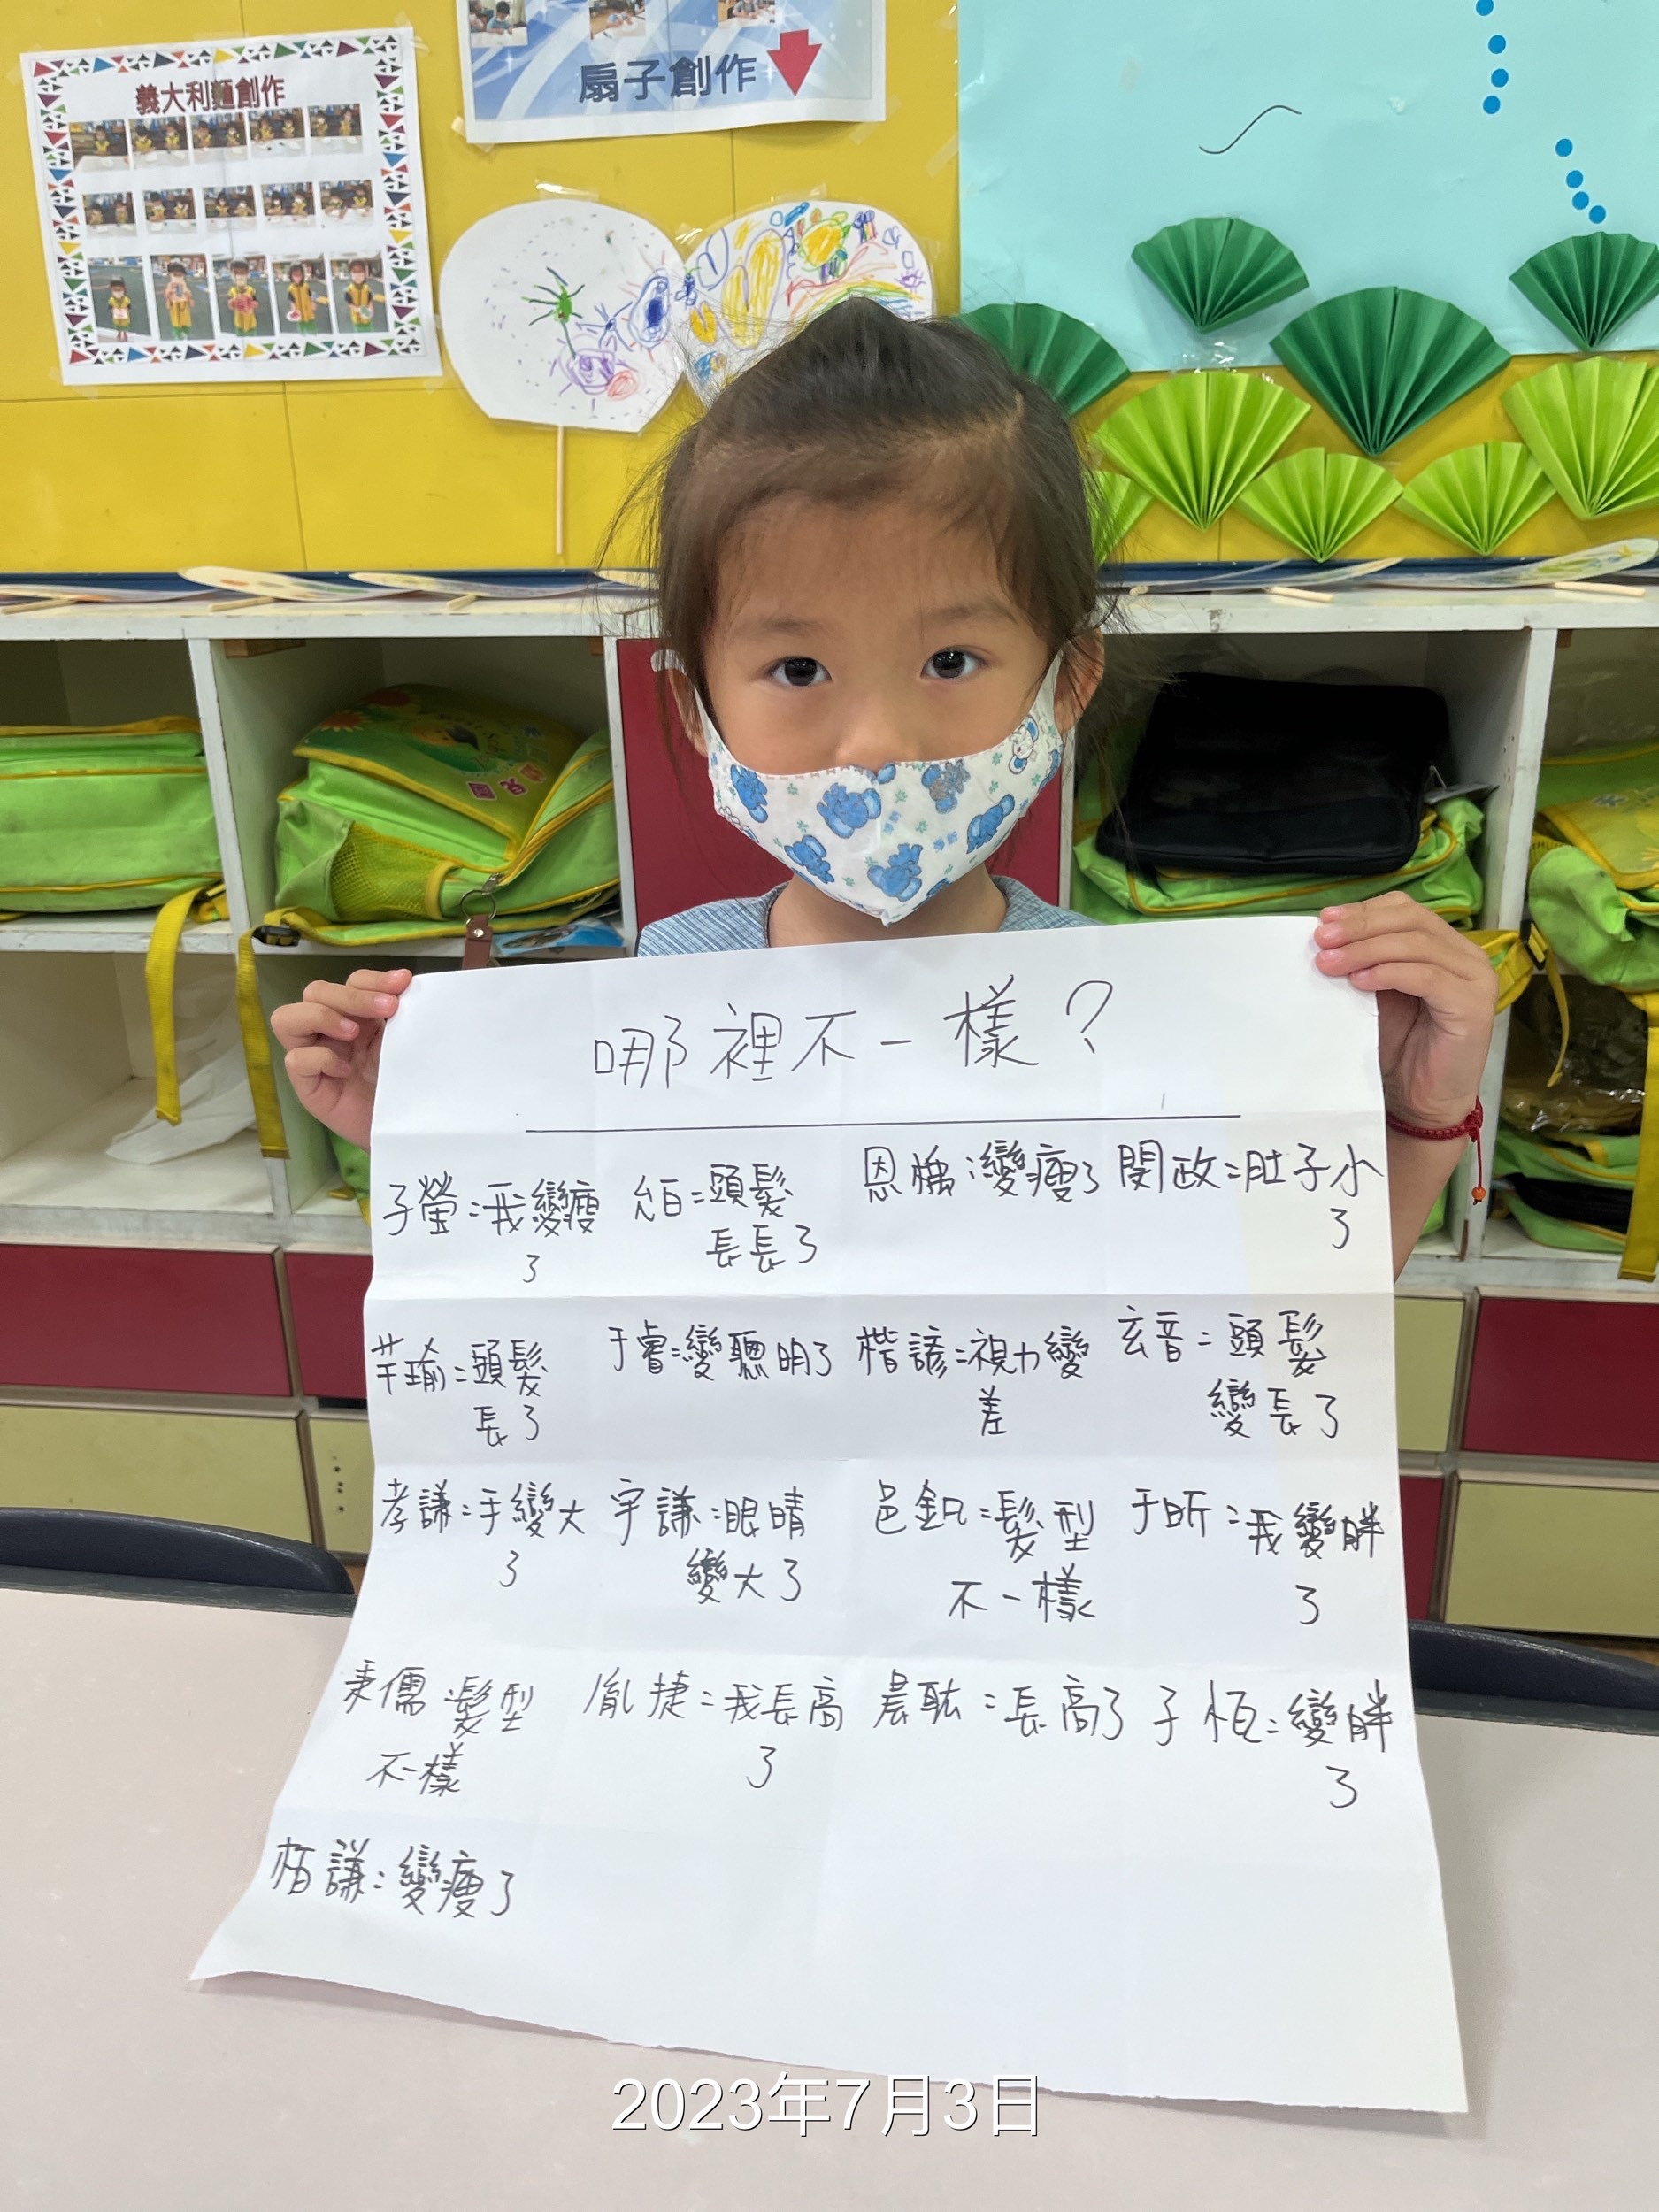 義大利麵創作
扇子創作
哪裡不一樣？
子瑩：我變瘦
了
允百：頭髮
長長了
恩愽：變瘦了
閔政：肚子小
了
芊瑜：頭髮
長了
于睿：變聰明了
楷諺：視力變
差
玄音：頭髮
變長了
孝謙：手變大
了
宇謙：眼睛
變大了
邑釩：髮型
不一樣
于昕：我變胖
了
秉儒：髮型
不一樣
胤捷：我長高
了
晨耘：長高了
子恆：變胖
了
栢謙：變瘦了
2023年7月3日